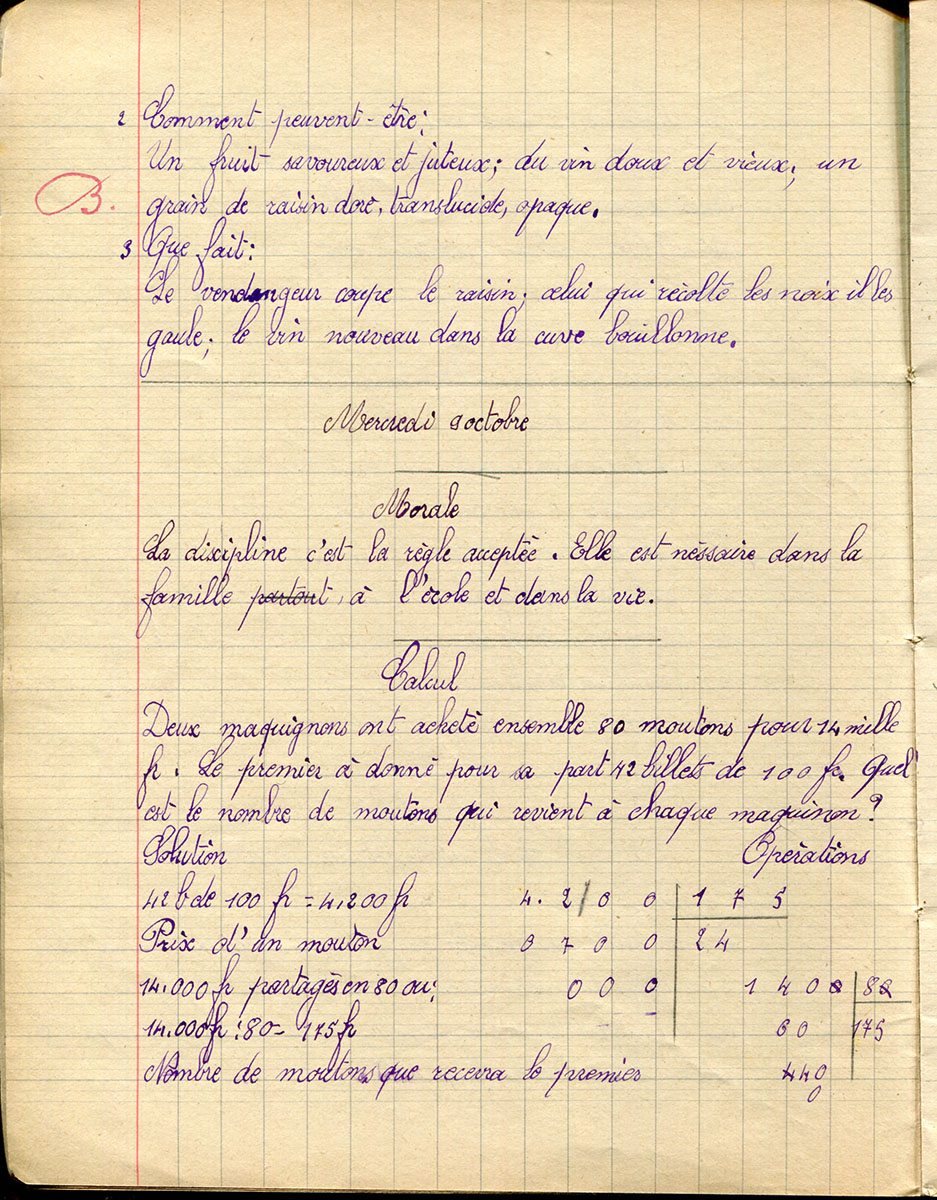 2 Comment peuvent-être:
Un fruit savoureux et juteux; du vin doux et vieux; un
B.
grain de raisin doré, translucide, opaque.
3 Que fait:
Le vendangeur coupe le raisin; celui qui récolte les noix il les
gaule; le vin nouveau dans la cuve bouillonne.
Mercredi 9 octobre
Morale
La discipline c'est la règle acceptée. Elle est néssaire dans la
famille partout, à l'école et dans la vie.
Calcul
Deux maquignons ont acheté ensemble 80 moutons pour 14 mille
fr. Le premier à donné pour sa part 42 billets de 100 fr. Quel
est le nombre de moutons qui revient à chaque maquinon?
Solution Opérations
42 b de 100 fr = 4.200 fr 4.2/00 175
Prix d'un mouton 0700 24
14.000 fr partagés en 80 ou: 000 1400 80
14.000 fr : 80 = 175 fr 60 175
Nombre de moutons que recevra le premier 440
0